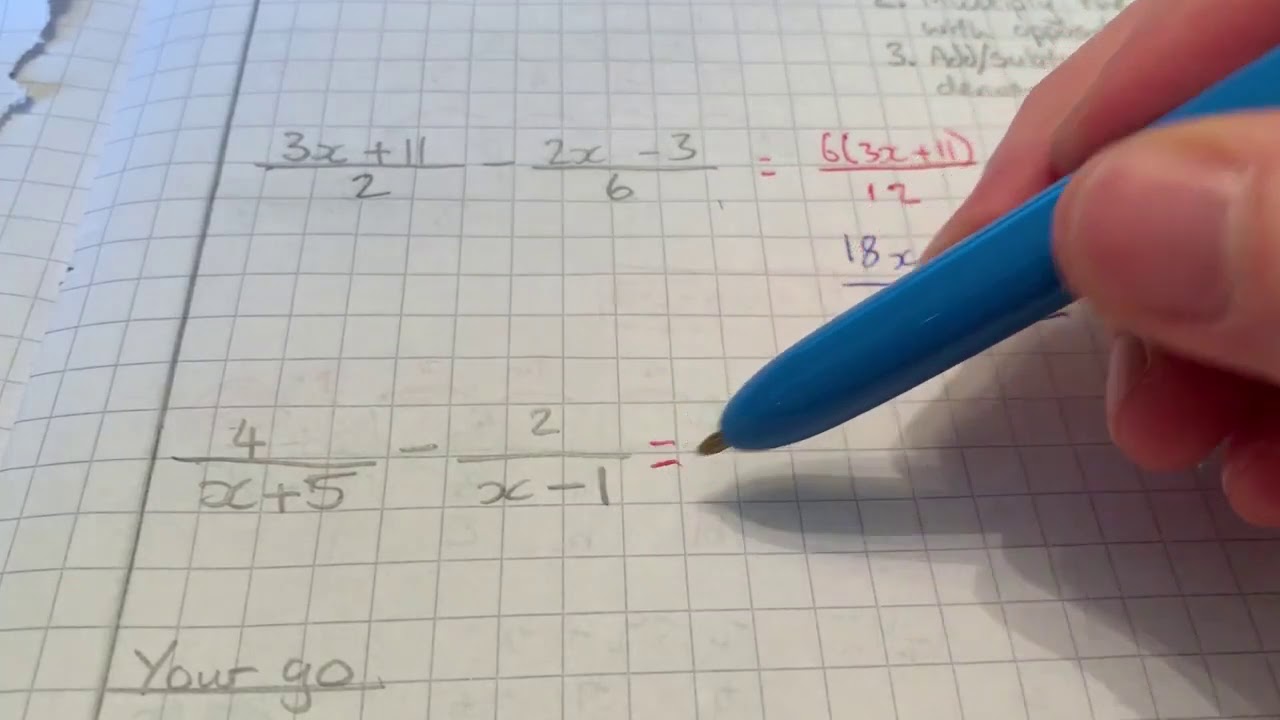 2. Multiply
with
3. Add/subt
3x + 11 / 2 - 2x - 3 / 6 = 6(3x+11) / 12
18x
4 / x+5 - 2 / x-1 =
Your go